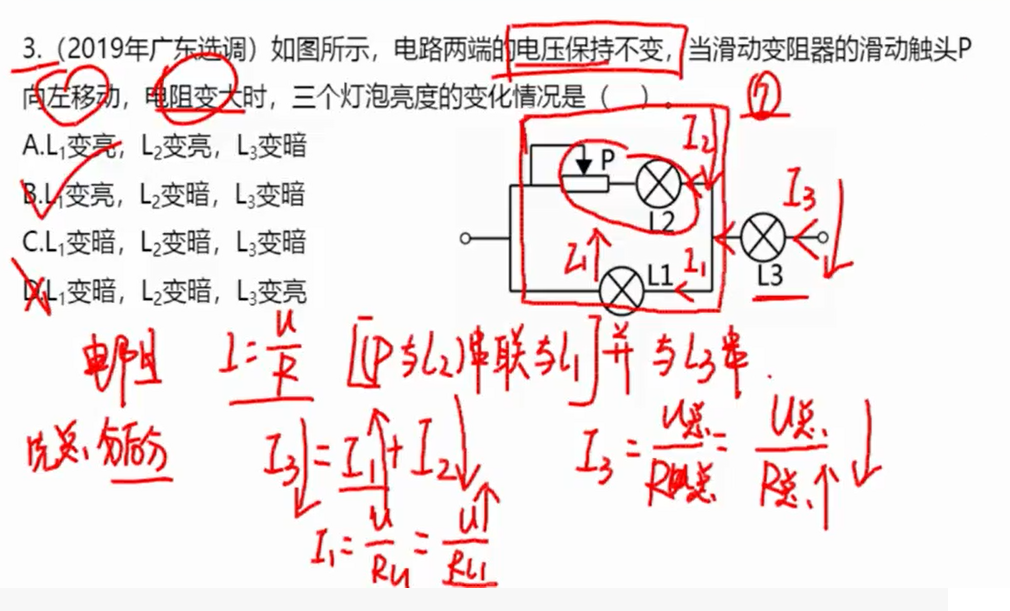 3.（2019年广东选调）如图所示，电路两端的电压保持不变，当滑动变阻器的滑动触头P
向左移动，电阻变大时，三个灯泡亮度的变化情况是（ ）。
A.L₁变亮，L₂变亮，L₃变暗
B.L₁变亮，L₂变暗，L₃变暗
C.L₁变暗，L₂变暗，L₃变暗
D.L₁变暗，L₂变暗，L₃变亮
I₂
P
L2
I₃
I₁
L1
I₁
L3
电阻 I=U/R [(P与L₂)串联与L₁]并与L₃串.
先总、后分
I₃=I₁+I₂
I₃=U总/R总=U总/R总
I₁=U/RL₁=U/RL₁